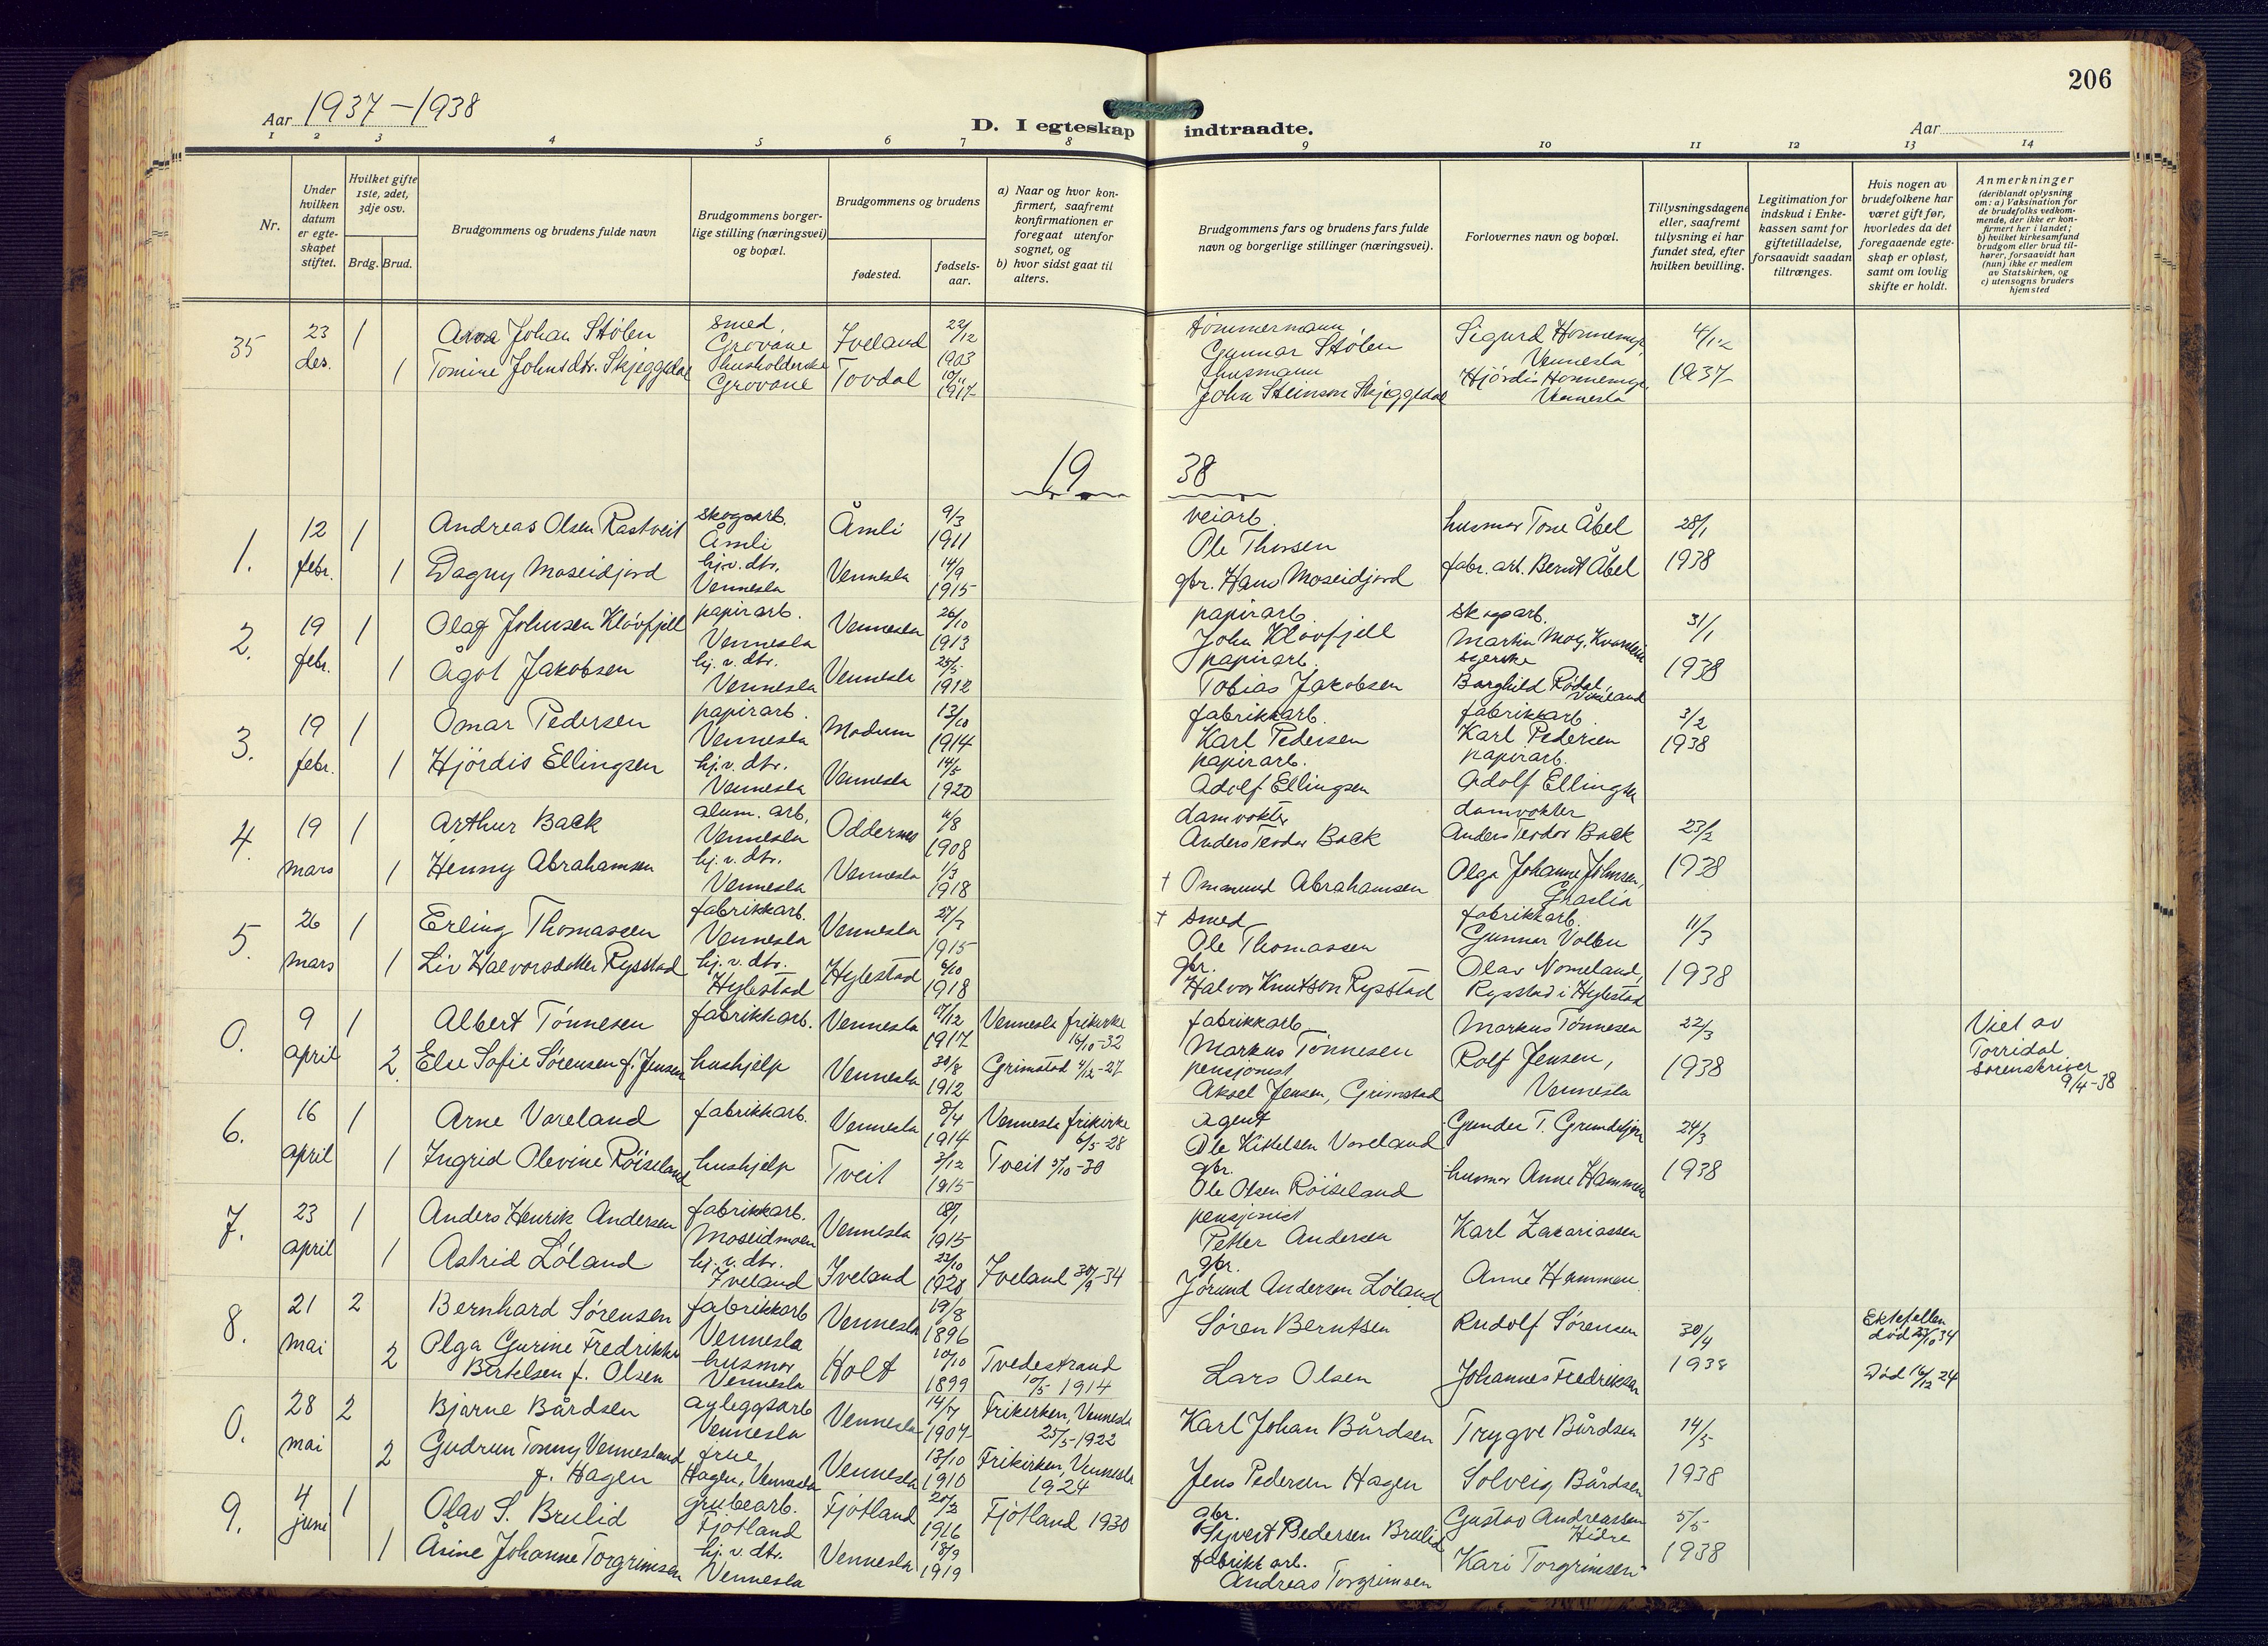 206
Aar 1937-1938
D. I egteskap indtraadte.
Aar
1 2 3 4 5 6 7 8 9 10 11 12 13 14
Nr.
Under hvilken datum er egteskapet stiftet.
Hvilket gifte 1ste, 2det, 3dje osv.
Brdg. Brud.
Brudgommens og brudens fulde navn
Brudgommens borgerlige stilling (næringsvei) og bopæl.
Brudgommens og brudens
fødested.
fødselsaar.
a) Naar og hvor konfirmert, saafremt konfirmationen er foregaat utenfor sognet, og
b) hvor sidst gaat til alters.
Brudgommens fars og brudens fars fulde navn og borgerlige stillinger (næringsvei).
Forlovernes navn og bopæl.
Tillysningsdagene eller, saafremt tillysning ei har fundet sted, efter hvilken bevilling.
Legitimation for indskud i Enkekassen samt for giftetilladelse, forsaavidt saadan tiltrænges.
Hvis nogen av brudefolkene har været gift før, hvorledes da det foregaaende egteskap er opløst, samt om lovlig skifte er holdt.
Anmerkninger (deriblandt oplysning om: a) Vaksination for de brudefolks vedkommende, der ikke er konfirmert her i landet; b) hvilket kirkesamfund brudgom eller brud tilhører, forsaavidt han (hun) ikke er medlem av Statskirken, og c) utensogns bruders hjemsted
35 23 des. 1 Johan Stølen smed, Grovane Iveland 22/12 1903 tømmermann, Gunnar Stølen Sigurd Vennesla 4/12 1937
1 Tomine Johnsdtr. Skjeggedal husholderske Grovane Tovdal husmann John Steinson Skjeggedal Hjördis Vennesla
19 38
1. 12 febr. 1 Andreas Olsen Rastveit skogsarb. Åmli Åmli 9/3 1911 veiarb. Ole Thorsen husmor Tone Åbel 28/1 1938
1 Dagny Moseidjord hj.v.dtr. Vennesla Vennesla 14/9 1915 gbr. Hans Moseidjord fabr. arb. Bernt Åbel
2. 19 febr. 1 Olaf Johnsen Kløvfjell papirarb. Vennesla Vennesla 26/10 1913 papirarb. John Kløvfjell skogsarb. Martin Moy, 31/1 1938
1 Ågot Jakobsen hj.v.dtr. Vennesla Vennesla 25/5 1912 papirarb. Tobias Jakobsen syerske Borghild Vikeland
3. 19 febr. 1 Omar Pedersen papirarb. Vennesla Modum 13/10 1914 fabrikkarb. Karl Pedersen fabrikkarb. Karl Pedersen 3/2 1938
1 Hjördis Ellingsen hj.v.dtr. Vennesla Vennesla 14/5 1920 papirarb. Adolf Ellingsen papirarb. Adolf Ellingsen
4. 19 mars 1 Arthur Back alum. arb. Vennesla Oddernes 11/8 1908 damvokter Anders Teodor Back damvokter Anders Teodor Back 23/2 1938
1 Henny Abrahamsen hj.v.dtr. Vennesla Vennesla 1/3 1918 † Ommund Abrahamsen Olga Johanne Johnsen, Graslia
5. 26 mars 1 Erling Thomassen fabrikkarb. Vennesla Vennesla 1915 † smed Ole Thomassen fabrikkarb. Gunnar Vollen 11/3 1938
1 Liv Halvorsdotter Rysstad hj.v.dtr. Hylestad Hylestad 6/10 1918 gbr. Halvor Knutson Rysstad Olav Nomeland, Rysstad i Hylestad
0. 9 april 1 Albert Tønnesen fabrikkarb. Vennesla 1917 Vennesla frikirke 16/10-32 fabrikkarb. Markus Tønnesen Markus Tønnesen 22/3 1938 Viet av Torridal sorenskriver 9/4-38
2. Else Sofie Sørensen f. Jensen hushjelp Vennesla 30/8 1912 Grimstad 4/12-27 pensjonist Aksel Jensen, Grimstad Rolf Jensen, Vennesla
6. 16 april 1 Arne Vareland fabrikkarb. Vennesla 8/4 1914 Vennesla frikirke 6/5-28 agent Ole Kittelsen Vareland Gunder T. 24/3 1938
1 Ingrid Olevine Röiseland hushjelp Tveit 3/12 1915 Tveit 5/10-30 gbr. Ole Olsen Röiseland husmor Anne Hammen
7. 23 april 1 Anders Henrik Andersen fabrikkarb. Moseidmoen Vennesla 1915 pensjonist Petter Andersen Karl Zakariassen
1 Astrid Løland hj.v.dtr. Iveland Iveland 22/10 1920 Iveland 30/9-34 gbr. Jørund Andersen Løland Anne Hammen
8. 21 mai 2 Bernhard Sørensen fabrikkarb Vennesla Vennesla 19/8 1896 Søren Berntsen Rudolf Sørensen 30/4 1938 Ektefellen død 23/10 34
2 Olga Gurine Fredrikke Bertelsen f. Olsen husmor Vennesla Holt 10/10 1899 Tvedestrand 10/5 1914 Lars Olsen Johannes Fredriksen Død 16/12 24
0. 28 mai 2 Bjarne Bårdsen avleggsarb Vennesla Vennesla 14/7 1907 Frikirken, Vennesla 25/5-1922 Karl Johan Bårdsen Trygve Bårdsen 14/5 1938
2 Gudrun Tonny Vennesland f. Hagen frue Hagen, Vennesla Vennesla 13/10 1910 Frikirken, Vennesla 1924 Jens Pedersen Hagen Solveig Bårdsen
9. 4 juni 1 Olav S. Brulid grubearb. Fjotland Fjotland 1916 Fjotland 1930 gbr. Syvert Pedersen Brulid Gustav Andreassen Hidre 5/5 1938
1 Åsine Johanne Torgrimsen hj.v.dtr. Vennesla Vennesla 18/9 1919 fabrikkarb. Andreas Torgrimsen Kari Torgrimsen